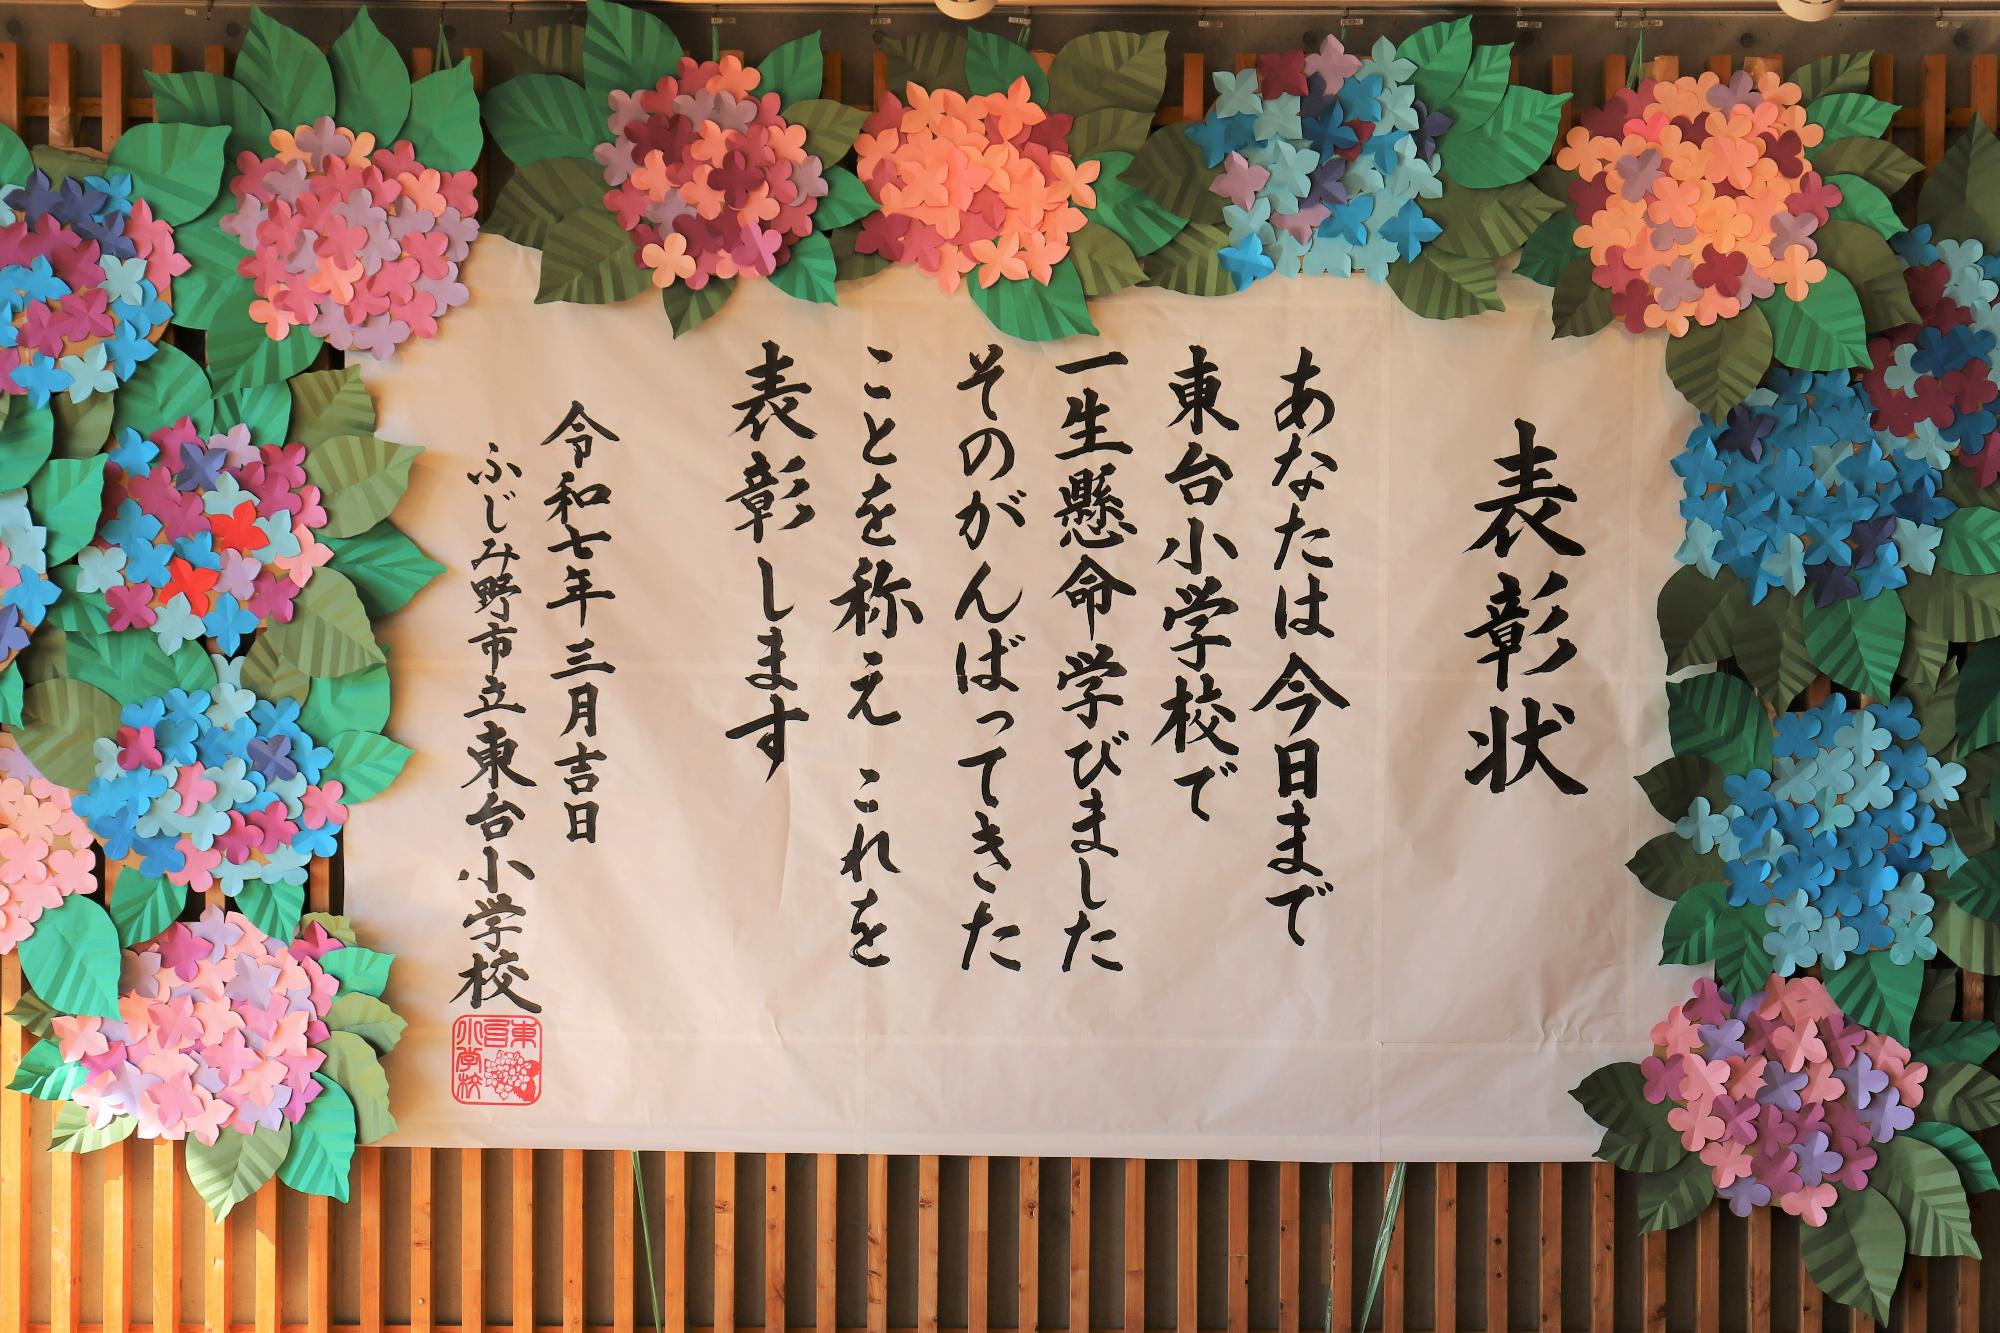 表彰状
あなたは今日まで
東台小学校で
一生懸命学びました
そのがんばってきた
ことを称え これを
表彰します
令和七年三月吉日
ふじみ野市立東台小学校
東台小学校